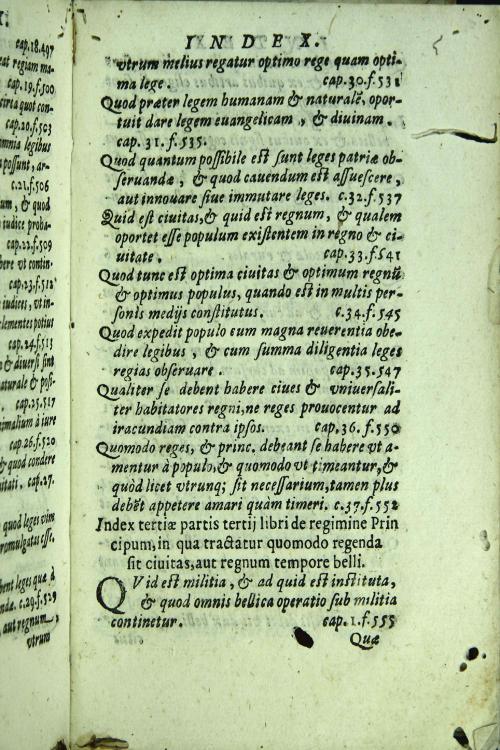 cap.18.497
eat regiam ma-
cap.19.f.500
circa quot con-
cap.20.f.503
omnia legibus
possunt, ar-
c.21.f.506
um, & quod
iudice proba-
cap.22.f.509
bere vt contin-
cap.23.f.512
iudices, vt in-
clementes potius
cap.24.f.513
& diuersi sint
naturale & posi-
cap.25.517
nimalium à iure
cap.26.f.520
& quod condere
cap.27.
quod leges vim
promulgatas esse.
bent leges quæ à
c.29.f.529
aut regnum,
vtrum
INDEX.
vtrum melius regatur optimo rege quam opti-
ma lege. cap.30.f.531
Quod præter legem humanam & naturalē, opor-
tuit dare legem euangelicam, & diuinam.
cap. 31. f.535.
Quod quantum possibile est sunt leges patriæ ob-
seruandæ, & quod cauendum est assuescere,
aut innouare siue immutare leges. c.32.f.537
Quid est ciuitas, & quid est regnum, & qualem
oportet esse populum existentem in regno & ci-
uitate. cap.33.f.541
Quod tunc est optima ciuitas & optimum regnū
& optimus populus, quando est in multis per-
sonis medijs constitutus. c.34.f.545
Quod expedit populo cum magna reuerentia obe-
dire legibus, & cum summa diligentia leges
regias obseruare. cap.35.547
Qualiter se debent habere ciues & vniuersali-
ter habitatores regni, ne reges prouocentur ad
iracundiam contra ipsos. cap.36.f.550
Quomodo reges, & princ. debeant se habere vt a-
mentur à populo, & quomodo vt timeantur, &
quòd licet vtrunq; sit necessarium, tamen plus
debēt appetere amari quàm timeri. c.37.f.552
Index tertiæ partis tertij libri de regimine Prin
cipum, in qua tractatur quomodo regenda
sit ciuitas, aut regnum tempore belli.
QVid est militia, & ad quid est instituta,
& quod omnis bellica operatio sub militia
continetur. cap.1.f.555
Quæ